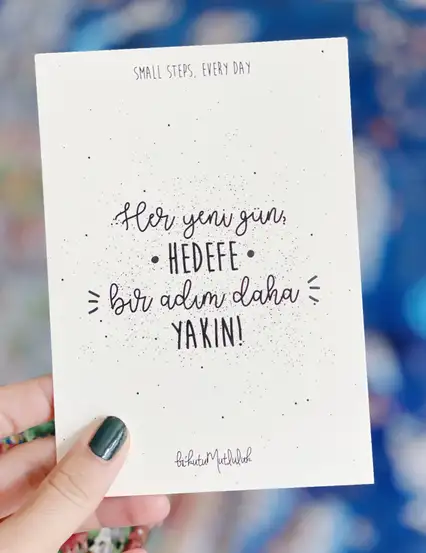 SMALL STEPS, EVERY DAY
Her yeni gün,
• HEDEFE •
bir adım daha
YAKIN!
bi'kutuMutluluk